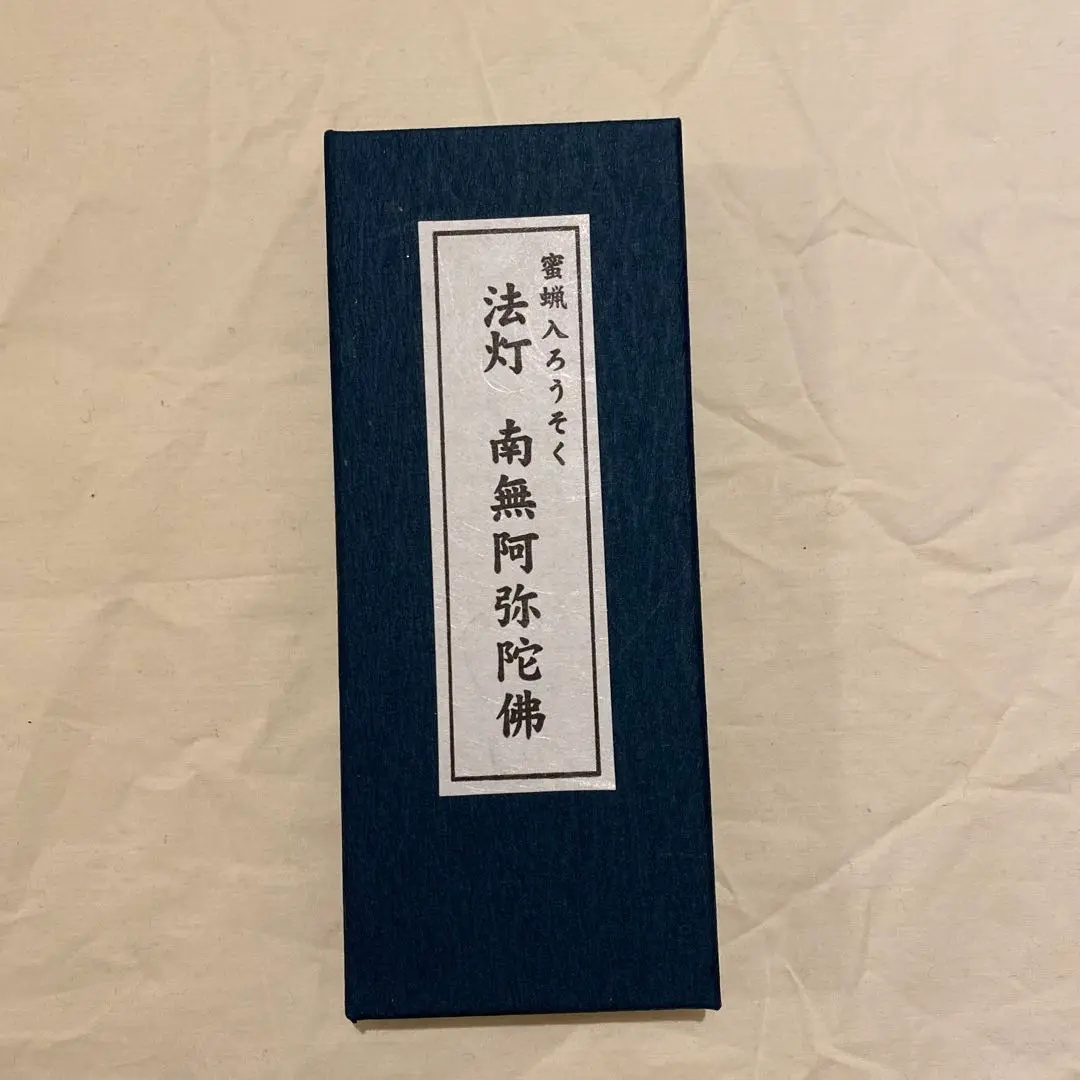 蜜蝋入ろうそく
法灯　南無阿弥陀佛